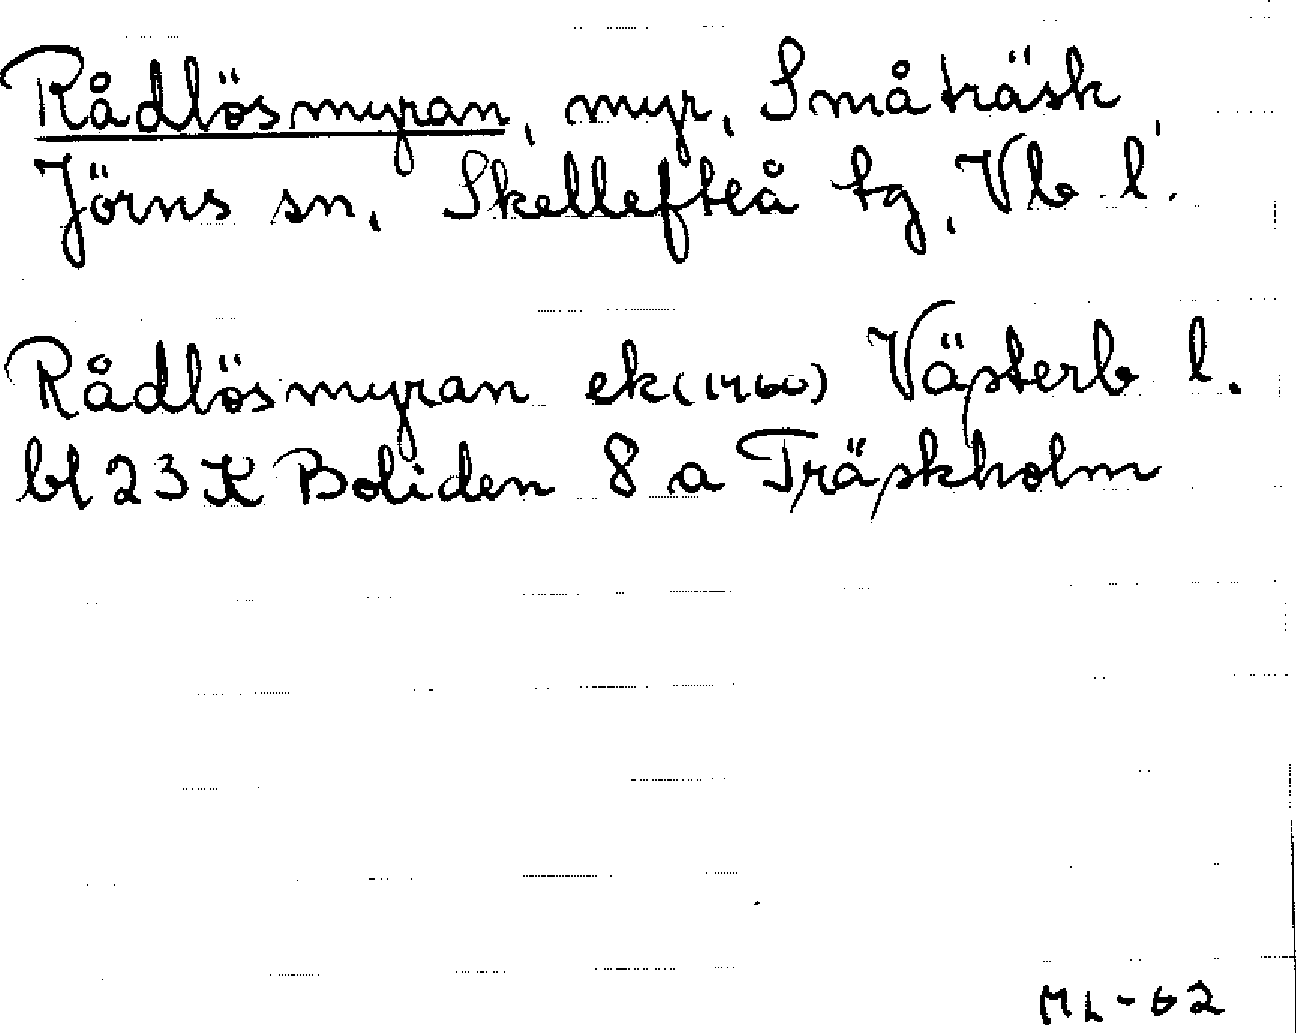 Rådlösmyran, myr, Småträsk,
Jörns sn, Skellefteå tg, Vb l.
Rådlösmyran ek (1960) Västerb l.
bl 23 K Boliden 8 a Träskholm
ML-62